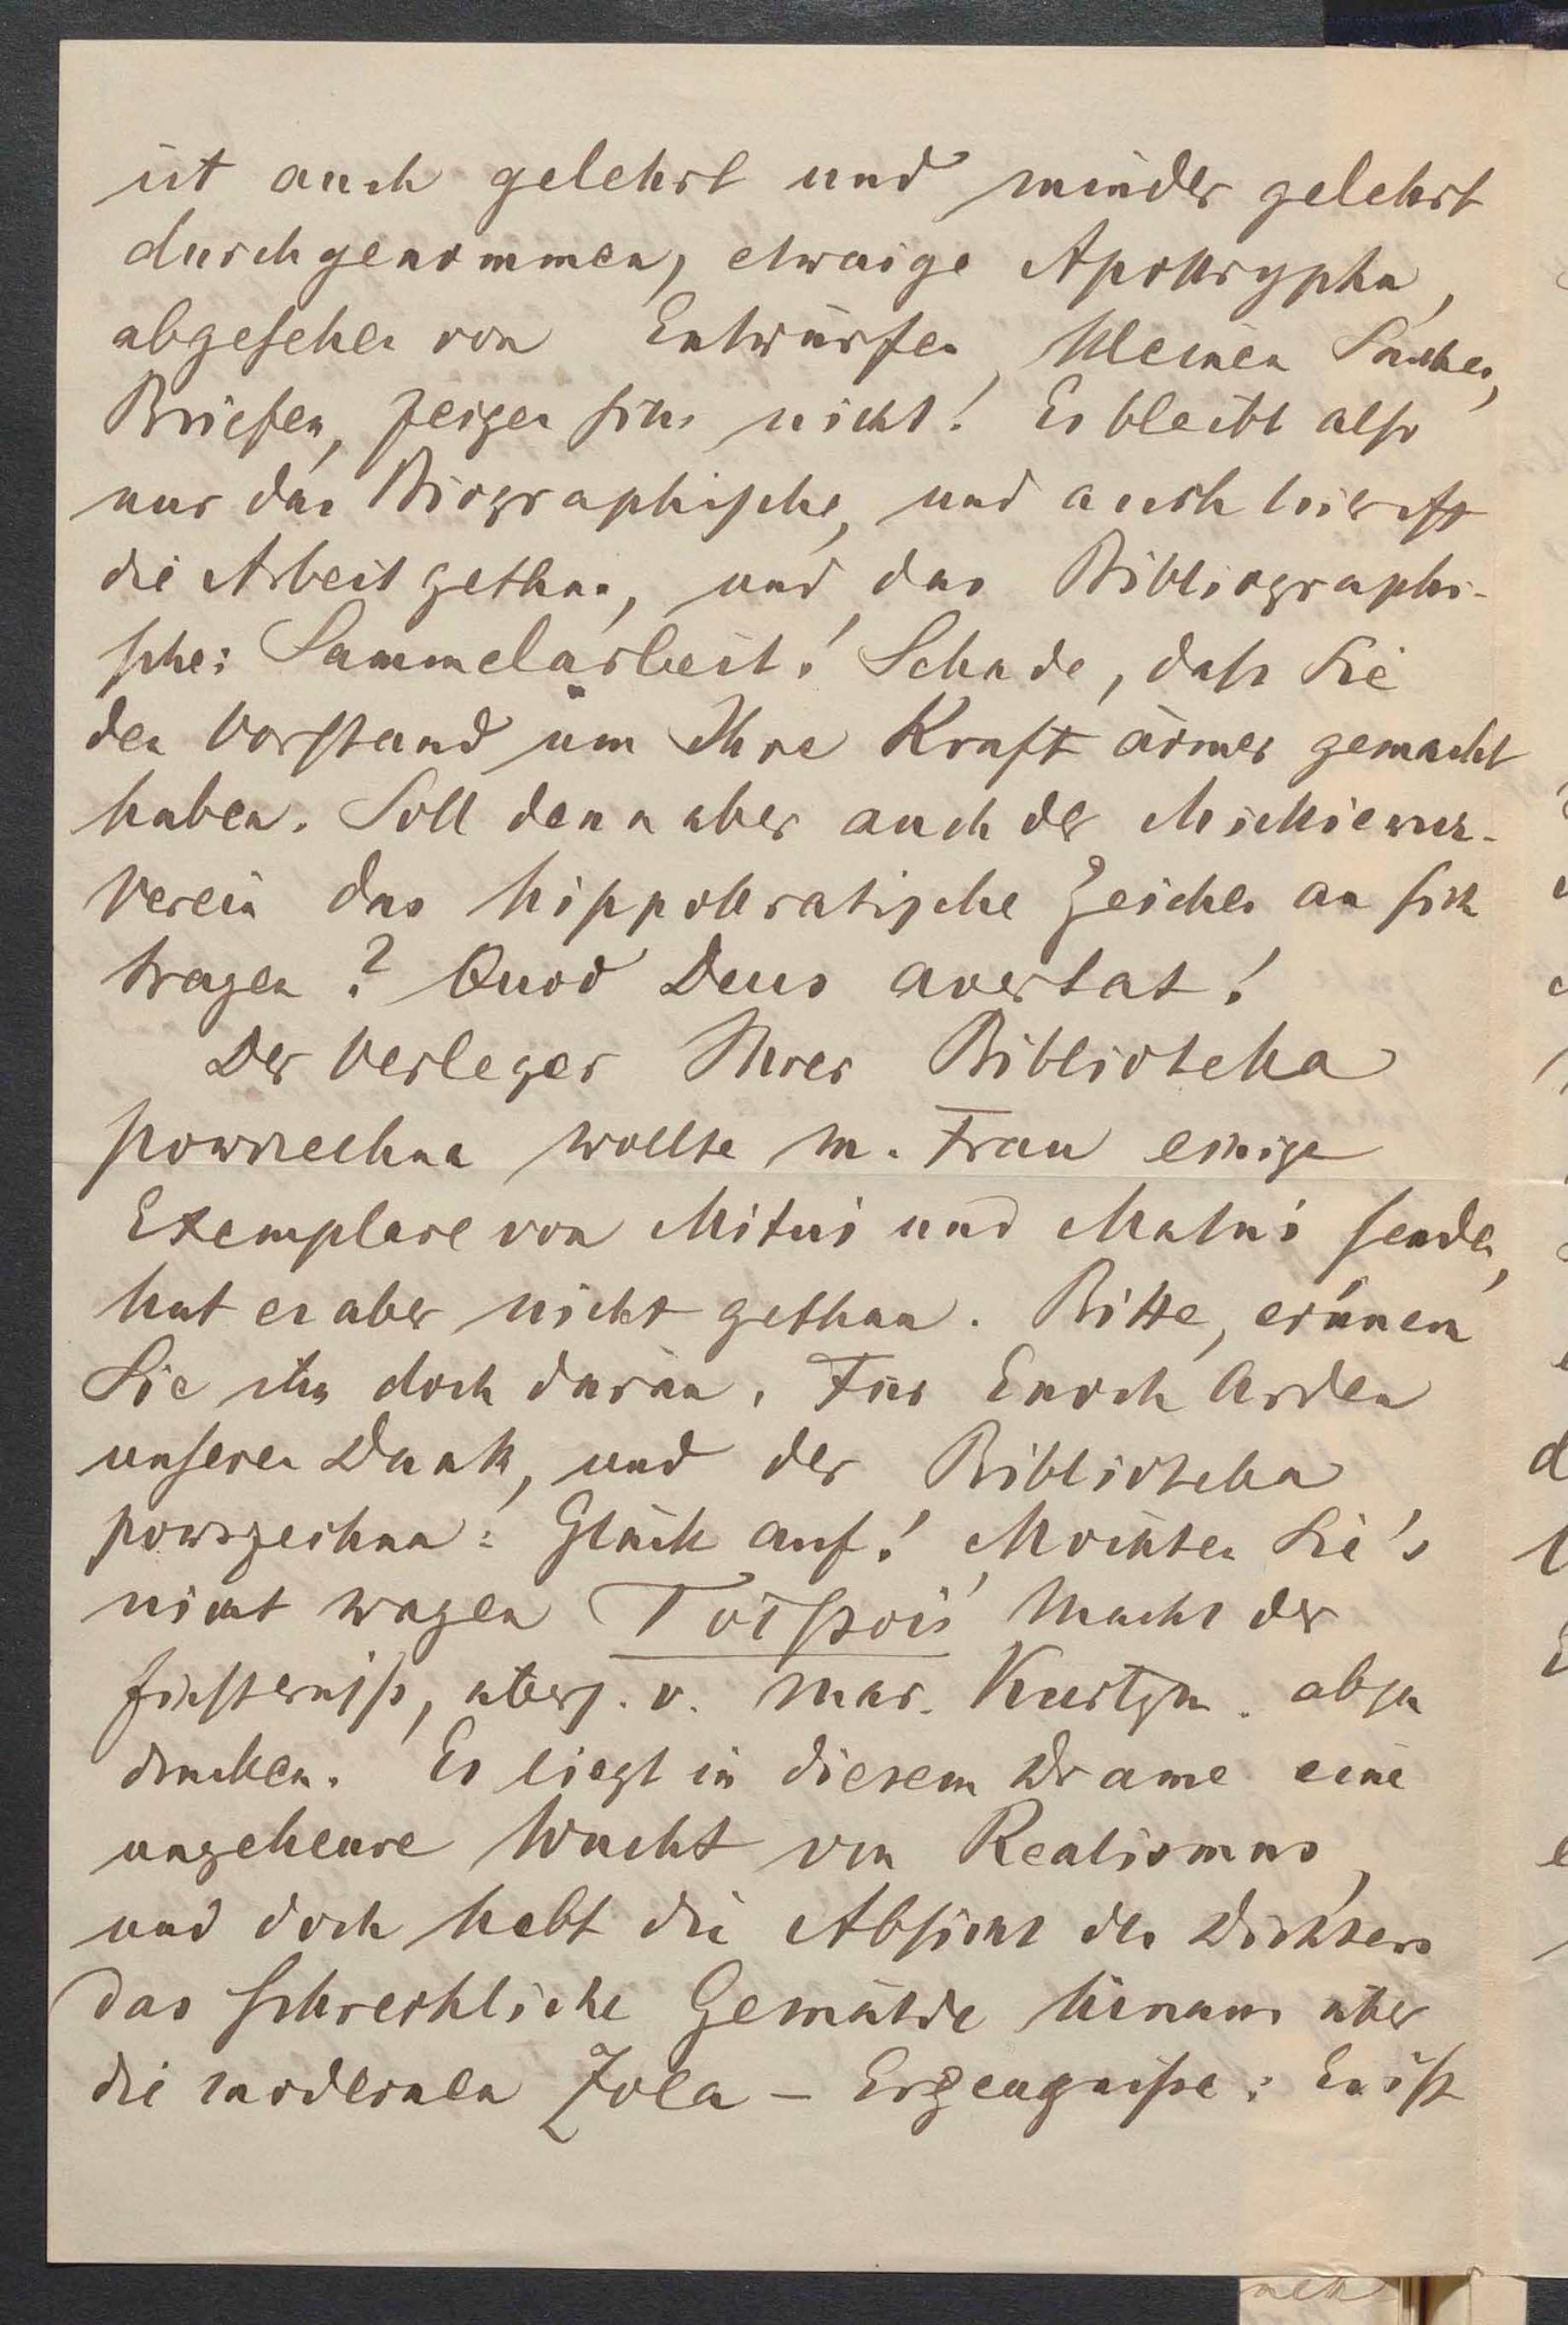 ist auch gelehrt und minder gelehrt
durchgenommen, etwaige Apokrypha,
abgesehen von Entwürfen, kleinen Sachen,
Briefen, zeigen sich nicht! Es bleibt also
nur das Biographische, und auch hier ist
die Arbeit gethan, und das Bibliographi-
sche: Sammelarbeit! Schade, dass Sie
den Vorstand um Ihre Kraft ärmer gemacht
haben. Soll denn aber auch der Mickiewicz-
verein das hippokratische Zeichen an sich
tragen? Quod Deus avertat!
Der Verleger Ihrer Biblioteka
powszechna wollte m. Frau einige
Exemplare von Mituś und Matuś senden,
hat es aber nicht gethan. Bitte, erinnern
Sie ihn doch daran. Für Enoch Arden
unseren Dank, und der Biblioteka
powszechna: Glück auf! Möchten Sie's
nicht wagen Tolstois Macht der
Finsterniss, übers. v. Mar. Kurtzm. abzu
drucken. Es liegt in diesem Drame eine
ungeheure Wucht von Realismus,
und doch hebt die Absicht des Dichters
das schreckliche Gemälde hinaus über
die modernen Zola - Erzeugnisse: Es ist
neh